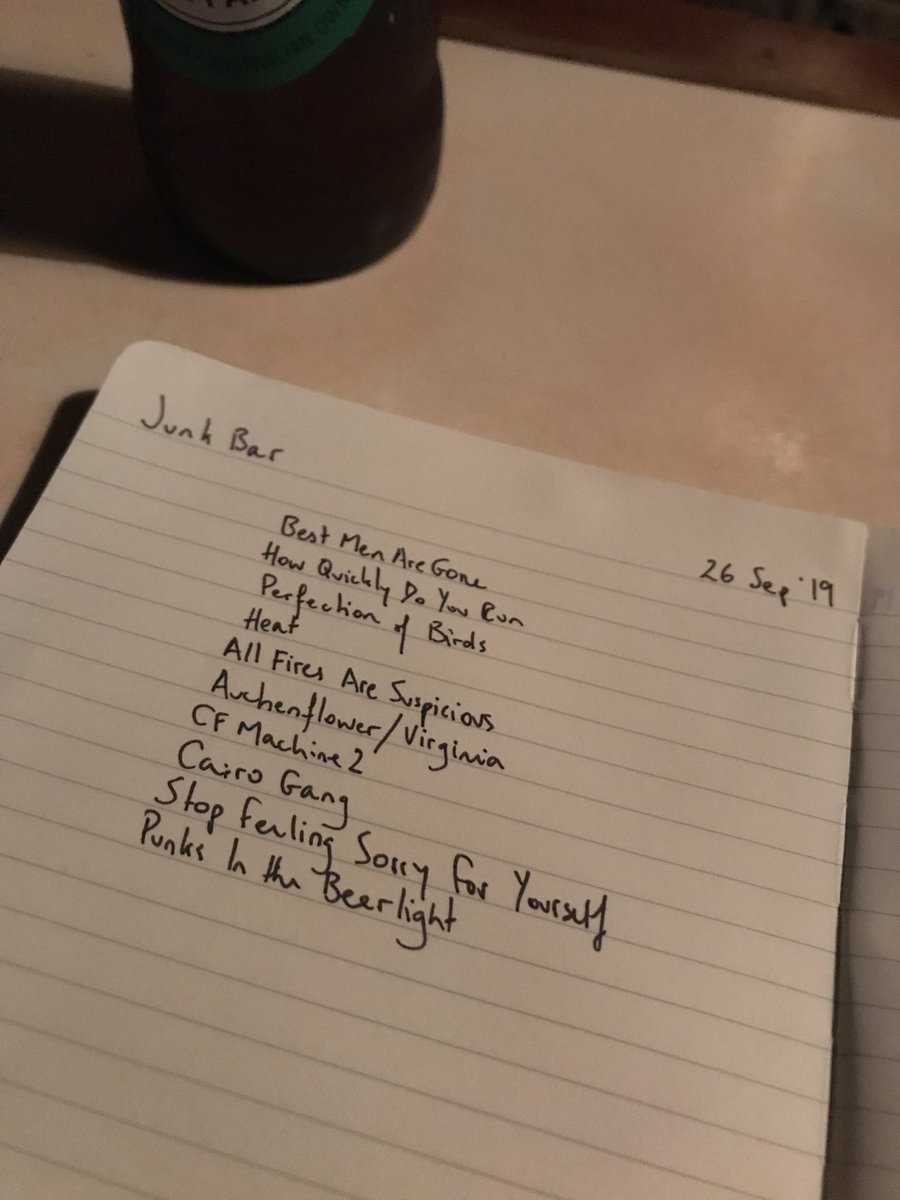 Junk Bar
26 Sep '19
Best Men Are Gone
How Quickly Do You Run
Perfection of Birds
Heat
All Fires Are Suspicious
Auchenflower/Virginia
CF Machine 2
Cairo Gang
Stop Feeling Sorry For Yourself
Punks In the Beerlight